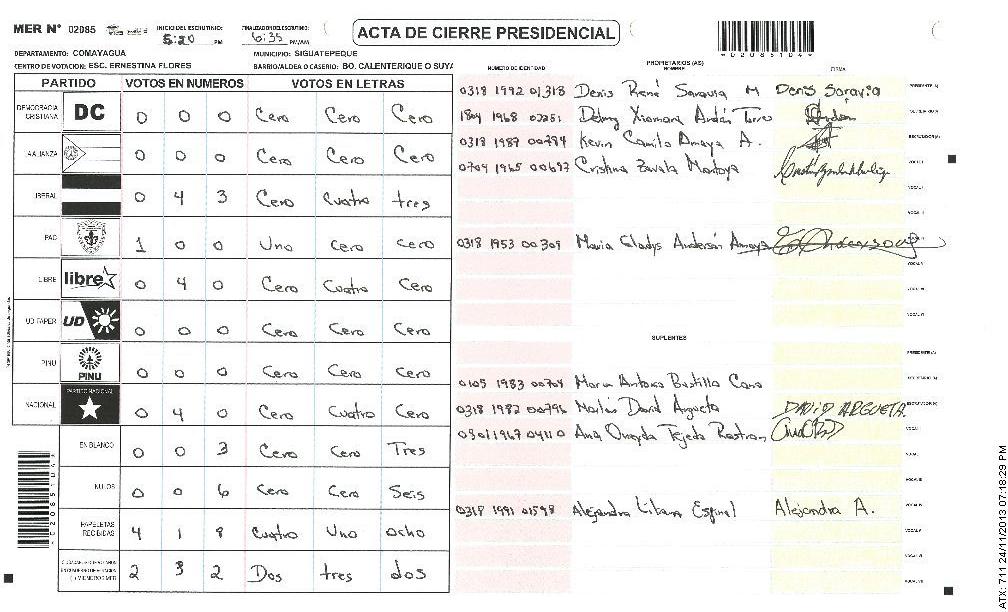 MER N° 02085 INICIO DEL ESCRUTINIO: 5:20 PM FINALIZACION DEL ESCRUTINIO: 6:35 PM/AM ACTA DE CIERRE PRESIDENCIAL *02085104*
DEPARTAMENTO: COMAYAGUA MUNICIPIO: SIGUATEPEQUE
CENTRO DE VOTACION: ESC. ERNESTINA FLORES BARRIO/ALDEA O CASERIO: BO. CALENTERIQUE O SUYA
NUMERO DE IDENTIDAD PROPIETARIOS (AS) NOMBRE FIRMA
PARTIDO VOTOS EN NUMEROS VOTOS EN LETRAS
DEMOCRACIA CRISTIANA DC 0 0 0 Cero Cero Cero
ALIANZA 0 0 0 Cero Cero Cero
LIBERAL 0 4 3 Cero Cuatro tres
PAC 1 0 0 Uno Cero Cero
LIBRE libre 0 4 0 Cero Cuatro Cero
UD FAPER UD 0 0 0 Cero Cero Cero
PINU PINU 0 0 0 Cero Cero Cero
NACIONAL PARTIDO NACIONAL 0 4 0 Cero Cuatro Cero
EN BLANCO 0 0 3 Cero Cero Tres
NULOS 0 0 6 Cero Cero Seis
PAPELETAS RECIBIDAS 4 1 8 Cuatro Uno ocho
2 3 2 Dos tres dos
0318 1992 01318 Denis René Saravia M Denis Saravia
1804 1968 Xiomara
0318 1987 00784 Kevin Camilo Amaya A.
0704 1965 00697 Cristina Zavala Montoya
0318 1953 00309 Maria Gladys Anderson Amaya
SUPLENTES
0105 1983 00704 Marco Antonio Bustillo Cano
0318 1982 00796 Marlon David Argueta DAVID ARGUETA.
0301 1967 04110 Ana Oneyda Tejeda
0318 1991 01598 Alejandra Espinel Alejandra A.
*02085104*
ATX: 711 24/11/2013 07:18:29 PM